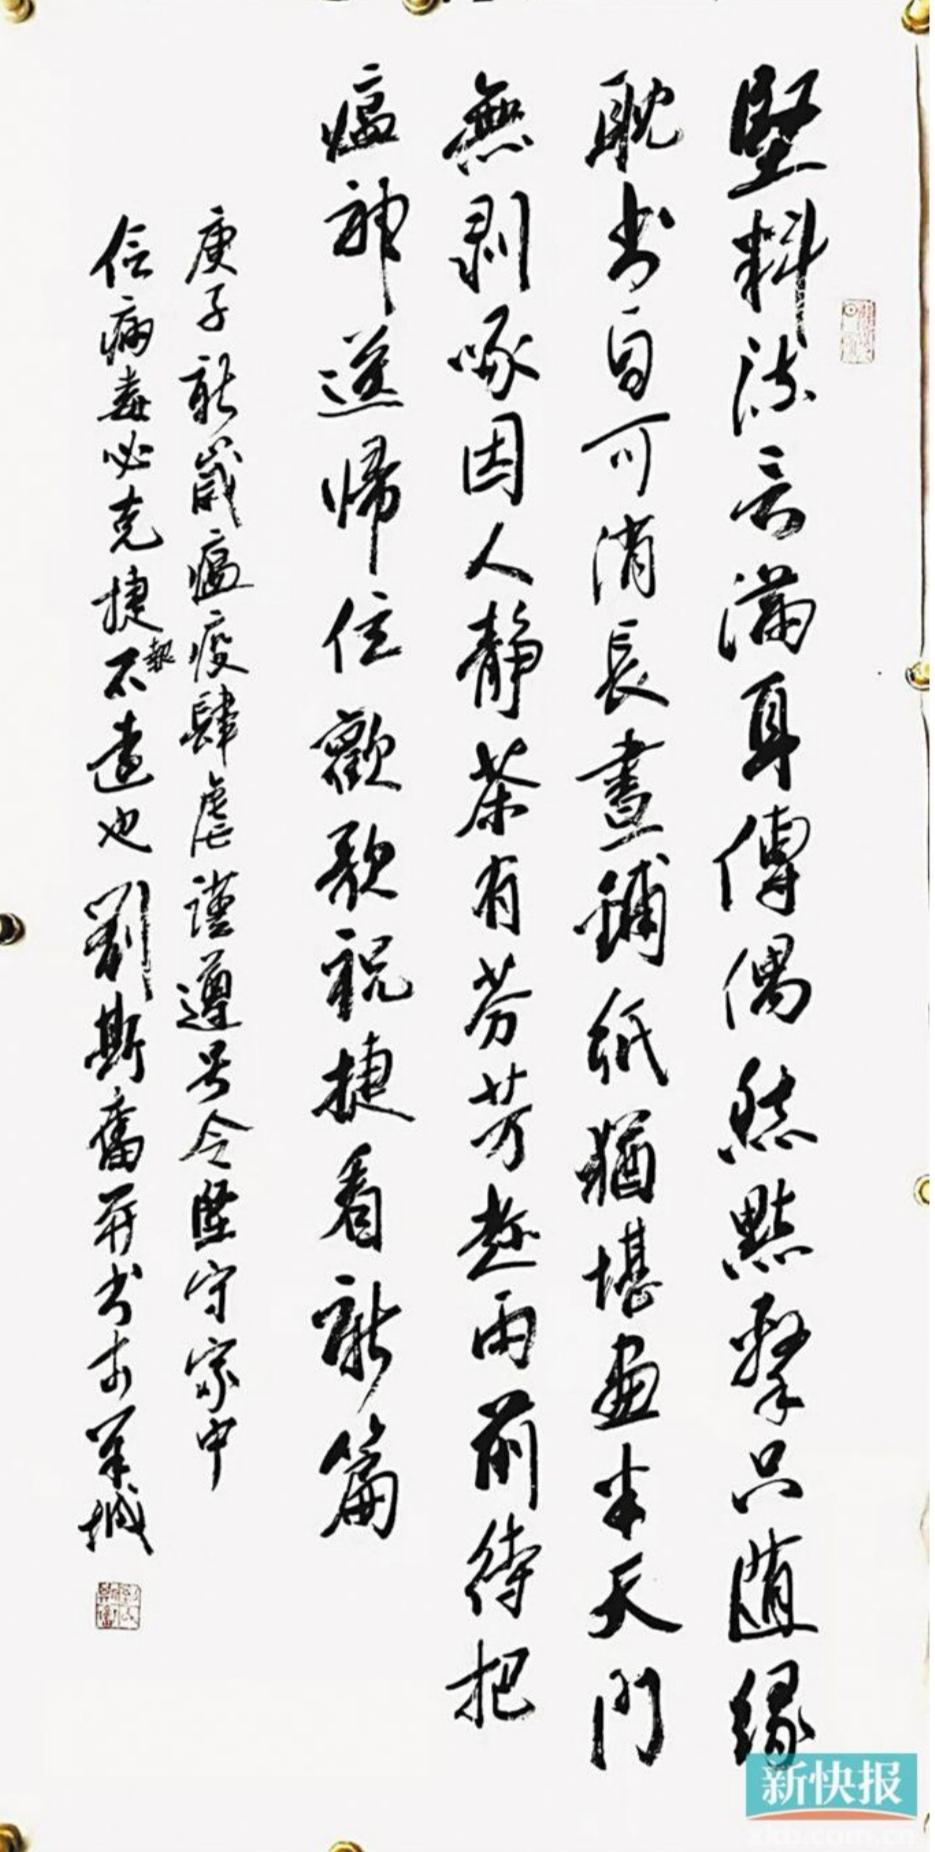 堅料流言滿耳傳偶然點擊只隨緣
耽书自可消長晝鋪紙猶堪畫半天門
無剥啄因人靜茶有芬芳趁雨前待把
瘟神送歸住歡歌祝捷看新篇
庚子新歲瘟疫肆虐謹遵号令堅守家中
信病毒必克捷報不遠也劉斯奮并书于羊城
新快报
xkb.com.cn